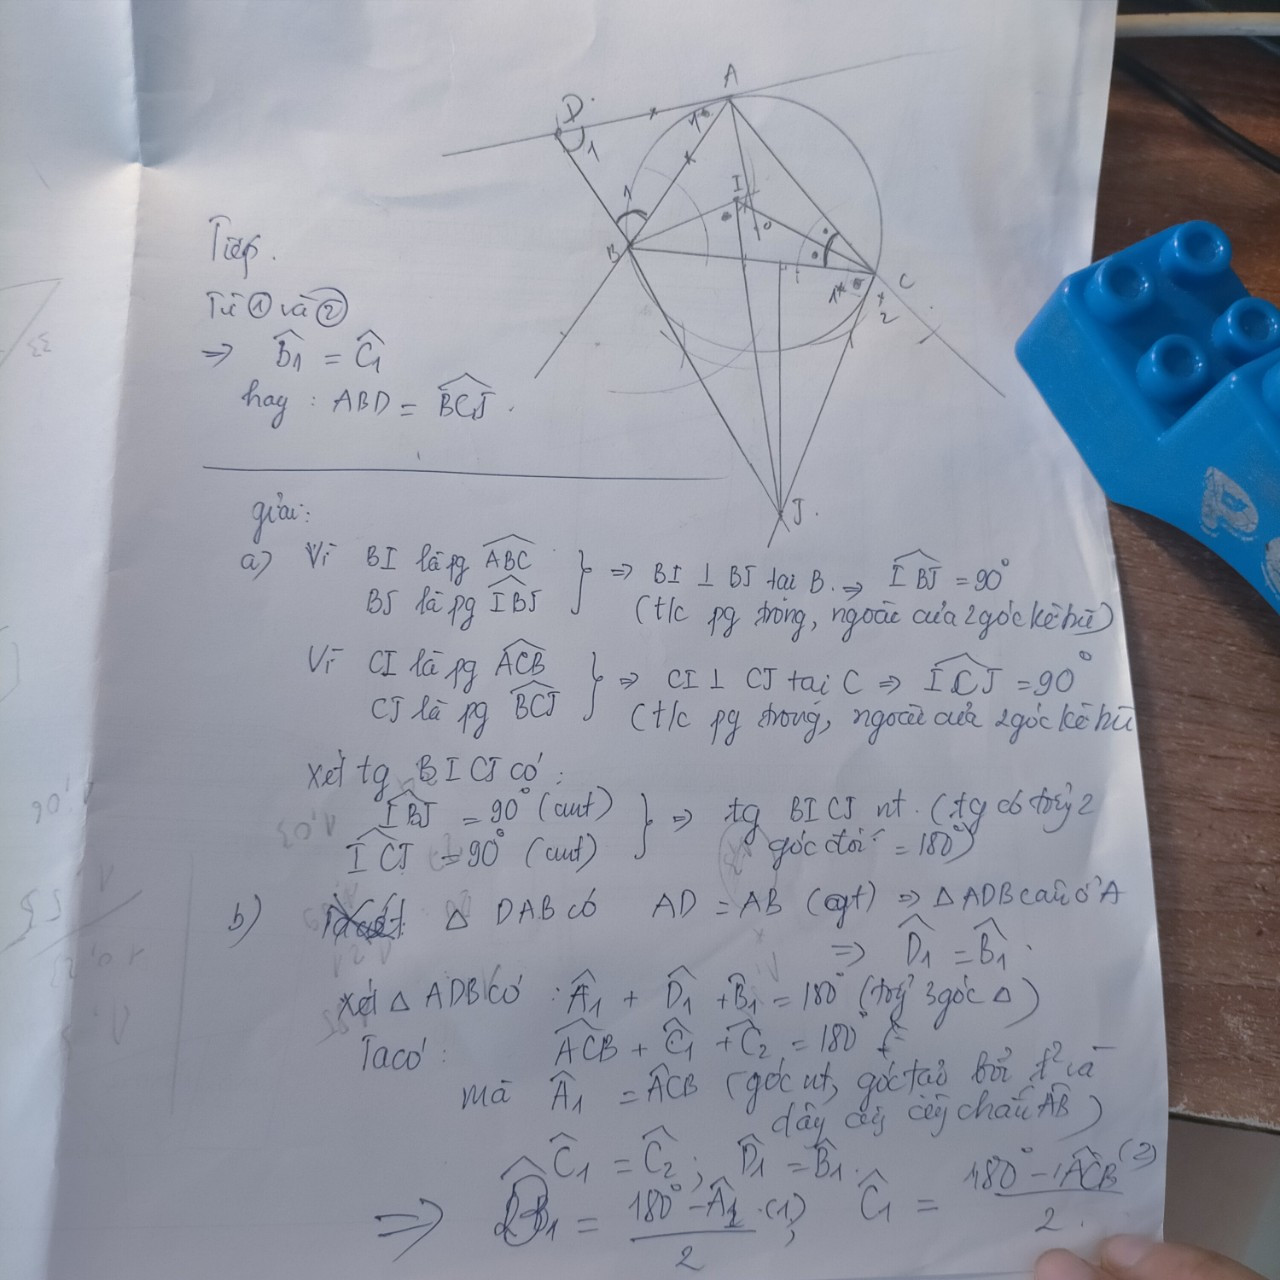 A
D
1
1
1
I
B
C
1
2
J.
Tiếp.
Từ ① và ②
=> B̂1 = Ĉ1
hay : ABD = BCJ.
giải:
a) Vì BI là pg ABC
BJ là pg IBJ
=> BI ⊥ BJ tại B. => IBJ = 90°
(t/c pg trong, ngoài của 2 góc kề bù)
Vì CI là pg ACB
CJ là pg BCJ
=> CI ⊥ CJ tại C => ICJ = 90°
(t/c pg trong, ngoài của 2 góc kề bù
xét tg BICJ có:
IBJ = 90° (cmt)
ICJ = 90° (cmt)
=> tg BICJ nt. (tg có tổng 2
góc đối = 180°)
b) Δ DAB có AD = AB (gt) => Δ ADB cân ở A
=> D̂1 = B̂1.
xét Δ ADB có : Â1 + D̂1 + B̂1 = 180° (tổng 3 góc Δ)
Ta có : ACB + Ĉ1 + Ĉ2 = 180° (
mà Â1 = ACB (góc nt, góc tạo bởi t² và
dây cg cùng chắn AB)
Ĉ1 = Ĉ2 ; D̂1 = B̂1.
=> B̂1 = 180° - Â1 / 2 (1), Ĉ1 = 180° - ACB / 2. (2)